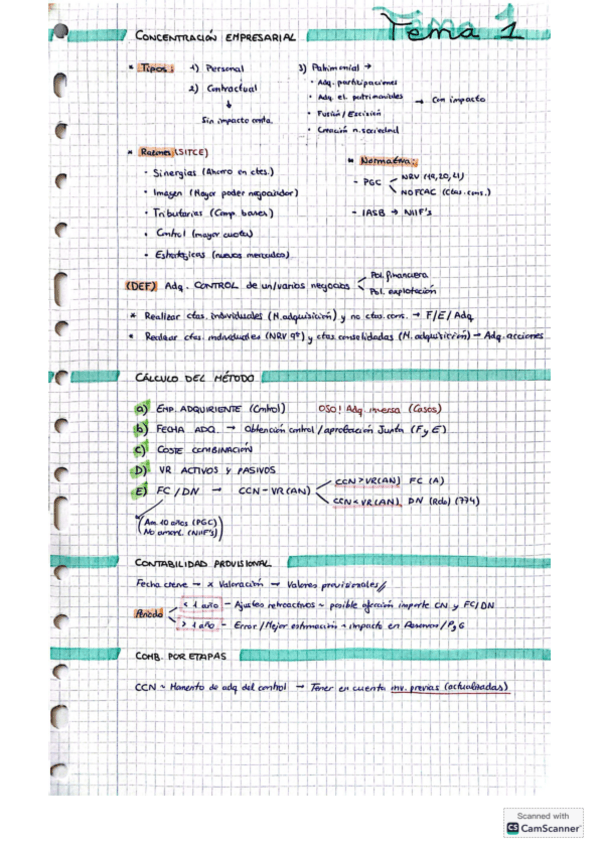 Tema 1
CONCENTRACIÓN EMPRESARIAL
* Tipos: 1) Personal 3) Patrimonial →
2) Contractual
↓
Sin impacto conta.
· Adq. participaciones
· Adq el. patrimoniales → Con impacto
· Fusión / Escisión
· Creación n. sociedad
* Razones (SITCE)
· Sinergias (Ahorro en ctes.)
· Imagen (Mayor poder negociador)
· Tributarias (Comp. bases)
· Control (mayor cuota)
· Estratégicas (nuevos mercados)
* Normativa:
- PGC NRV (19, 20, 21)
NOFCAC (Ctas. cons.)
- IASB → NIIF's
(DEF) Adq. CONTROL de un/varios negocios Pol. financiera
Pol. explotación
* Realizar ctas. individuales (M. adquisición) y no ctas. cons. → F/E/Adq
* Realizar ctas. individuales (NRV 9ª) y ctas. consolidadas (M. adquisición) → Adq. acciones
CÁLCULO DEL MÉTODO
a) EMP. ADQUIRIENTE (Control) OJO! Adq. inversa (Casos)
b) FECHA ADQ. → Obtención control / aprobación Junta (F y E)
C) COSTE COMBINACIÓN
D) VR ACTIVOS Y PASIVOS
E) FC / DN → CCN - VR(AN) CCN > VR(AN) FC (A)
CCN < VR(AN) DN (Rdo) (774)
(Am. 10 años (PGC)
No amort. (NIIF's))
CONTABILIDAD PROVISIONAL
Fecha cierre → x Valoración → Valores provisionales //
Periodo < 1 año - Ajustes retroactivos ~ posible afección importe CN y FC/DN
> 1 año - Error / Mejor estimación → impacto en Reservas / PyG
COMB. POR ETAPAS
CCN ~ Momento de adq del control → Tener en cuenta inv. previas (actualizadas)
Scanned with
CS CamScanner